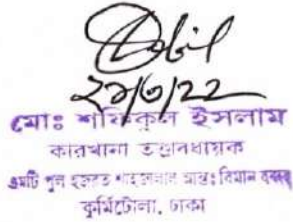 ২৯/৩/22
মোঃ শফিকুল ইসলাম
কারখানা তত্ত্বাবধায়ক
এমটি পুল হযরত শাহজালাল আন্তঃ বিমান বন্দর
কুর্মিটোলা, ঢাকা